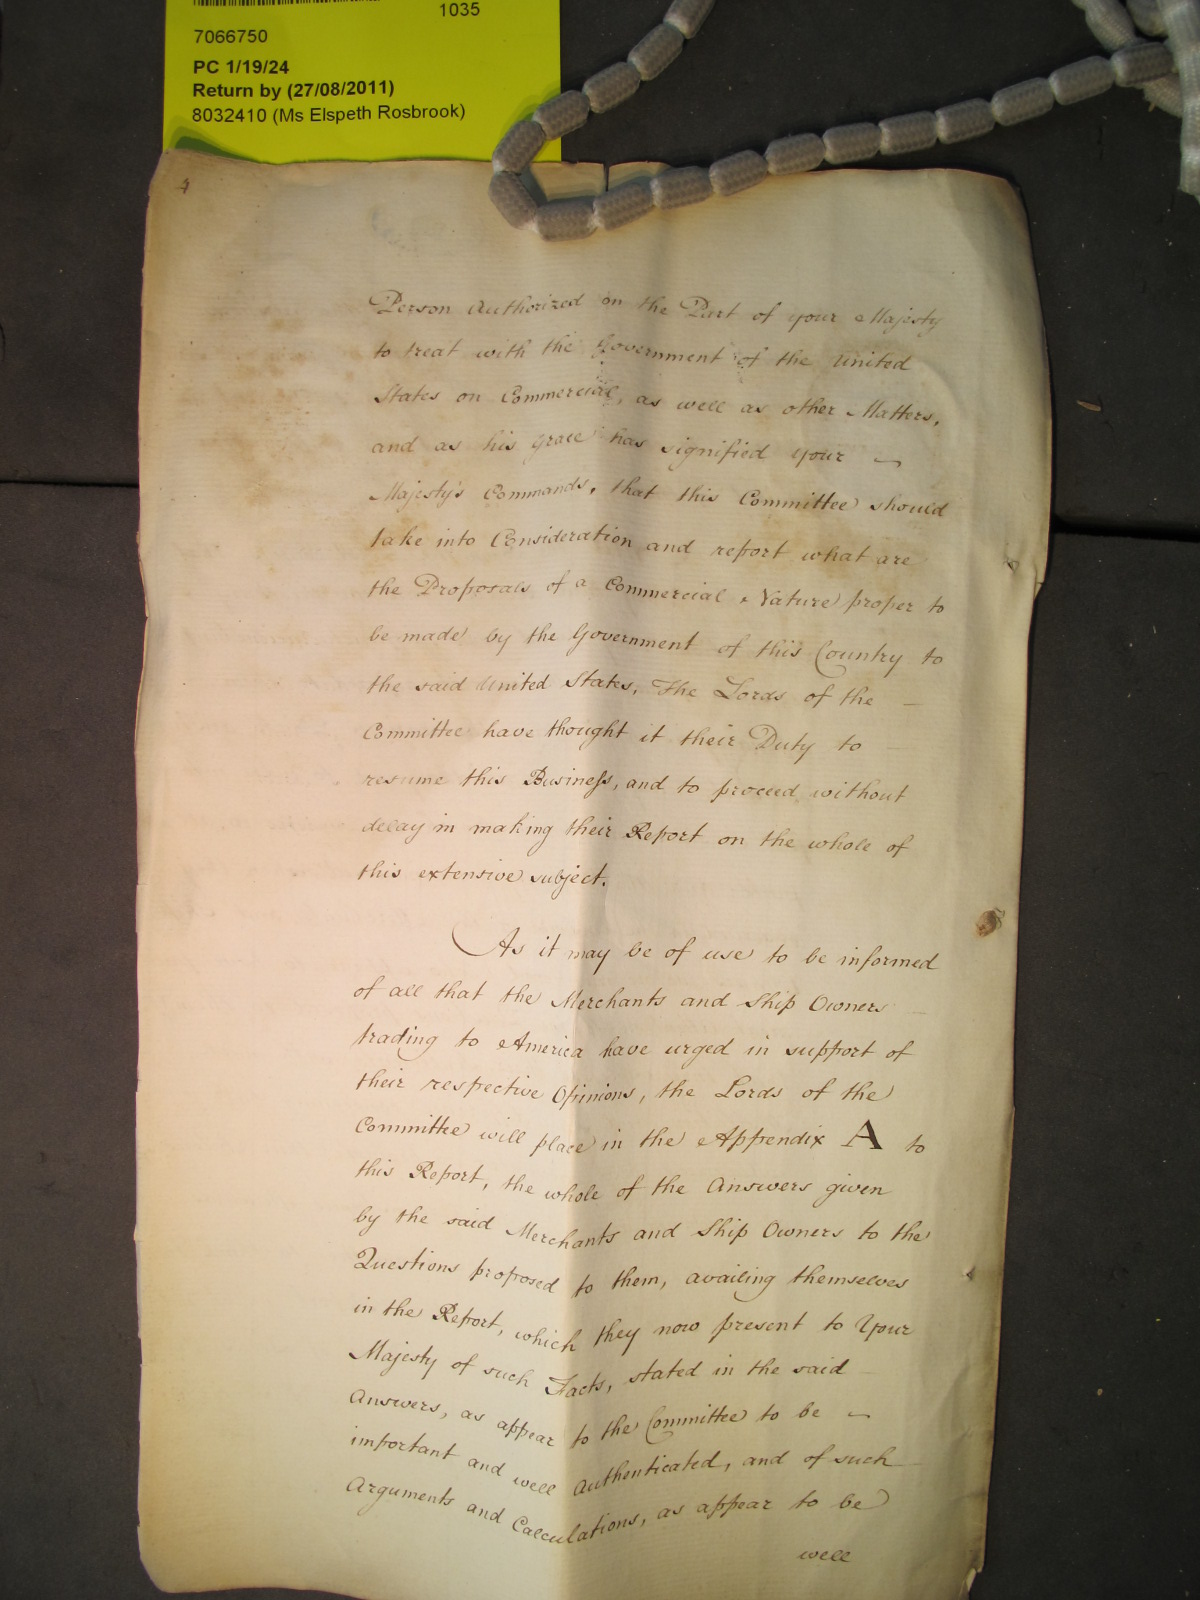 1035
7066750
PC 1/19/24
Return by (27/08/2011)
8032410 (Ms Elspeth Rosbrook)
4
Person Authorized on the Part of your Majesty
to treat with the Government of the United
States on Commercial, as well as other Matters,
and as his Grace has signified your
Majesty's Commands, that this Committee should
take into Consideration and report what are
the Proposals of a Commercial Nature proper to
be made by the Government of this Country to
the said United States, The Lords of the
Committee have thought it their Duty to
resume this Business, and to proceed without
delay in making their Report on the whole of
this extensive subject.
As it may be of use to be informed
of all that the Merchants and Ship Owners
trading to America have urged in support of
their respective Opinions, the Lords of the
Committee will place in the Appendix A to
this Report, the whole of the Answers given
by the said Merchants and Ship Owners to the
Questions proposed to them, availing themselves
in the Report, which they now present to Your
Majesty of such Facts, stated in the said
Answers, as appear to the Committee to be
important and well Authenticated, and of such
Arguments and Calculations, as appear to be
well